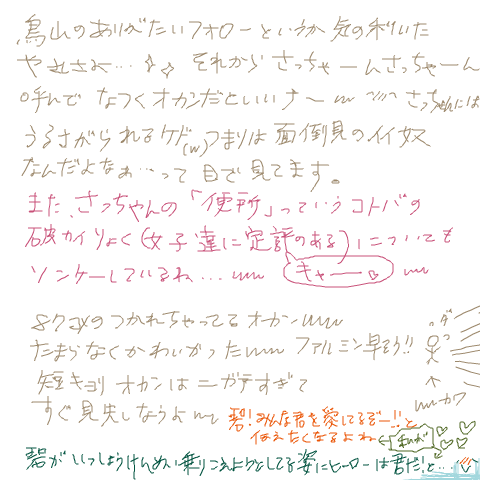 鳥山のありがたいフォローというか気の利いた
やさしさよ…♪♪ それからさっちゃーんさっちゃーん
呼んで なつくオカンだといいナ〜 〰 さっちゃんには
うるさがられるケド(w)つまりは面倒見のイイ奴
なんだよなぁ…って目で見てます。
また、さっちゃんの「便所」っていうコトバの
破カイりょく(女子達に定評のある)についても
ソンケーしているね… キャー♡
8クマのつかれちゃってるオカン
たまらなくかわいかった ファルミン早そう!!
ダッ
短キョリ オカンはニガテすぎて
すぐ見失しなうよ カワ
碧!みんな君を愛してるぞー!!と
伝えたくなるよね ←私が
碧がいっしょうけんめい乗りこえようとしてる姿にヒーローは君だ!と…